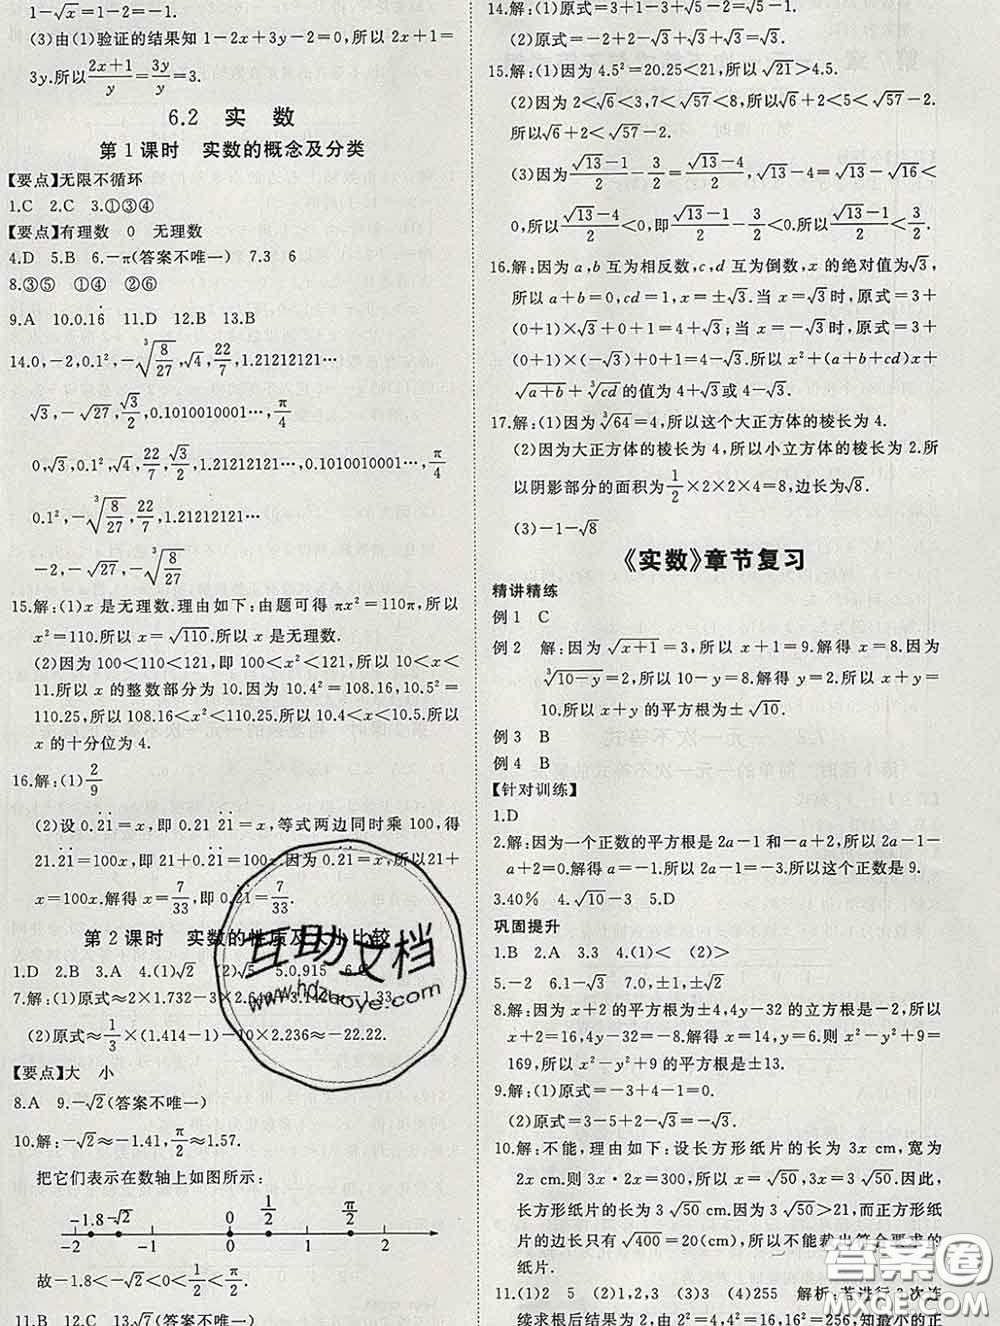 1-√x=1-2=-1.
(3)由(1)验证的结果知 1-2x+3y-2=0,所以 2x+1=
3y.所以(2x+1)/y=3y/y=3.
6.2 实 数
第 1 课时 实数的概念及分类
【要点】无限不循环
1.C 2.C 3.①③④
【要点】有理数 0 无理数
4.D 5.B 6.-π(答案不唯一) 7.3 6
8.③⑤ ①④ ②⑥
9.A 10.0.16̇ 11.D 12.B 13.B
14.0,-2,0.1²,-∛(8/27),√4,22/7,1.21212121…
√3,-√27,√3/2,0.1010010001…,π/4
0,√3,0.1²,√4,22/7,√3/2,1.21212121…,0.1010010001…,π/4
0.1²,-∛(8/27),22/7,1.21212121…
-2,-√27,-∛(8/27)
15.解:(1)x 是无理数.理由如下:由题可得 πx²=110π,所以
x²=110.所以 x=√110.所以 x 是无理数.
(2)因为 100<110<121,即 100<x²<121,所以 10<x<
11.所以 x 的整数部分为 10.因为 10.4²=108.16,10.5²=
110.25,所以 108.16<x²<110.25,所以 10.4<x<10.5.所以
x 的十分位为 4.
16.解:(1)2/9
(2)设 0.2̇1̇=x,即 0.21 21…=x,等式两边同时乘 100,得
21.2̇1̇=100x,即 21+0.2̇1̇=100x.因为 0.2̇1̇=x,所以21+
x=100x.解得 x=7/33,即 0.2̇1̇=7/33.
第 2 课时 实数的性质及大小比较
1.D 2.B 3.A 4.(1)√2 (2)√5 5.0,915
7.解:(1)原式≈2×1.732-3×2.6
(2)原式≈1/3×(1.414-1)-10×2.236≈-22.22.
【要点】大 小
8.A 9.-√2(答案不唯一)
10.解:-√2≈-1.41,π/2≈1.57.
把它们表示在数轴上如图所示:
-1.8 -√2 0 1/2 π/2
-2 -1 0 1 2
故-1.8<-√2<0<1/2<π/2.
11.B 12.C 13.√7(答案不唯一)
14.解:(1)原式=3+1-3+√5-2=√5-1.
(2)原式=-2+2-√3+√3=0.
15.解:(1)因为 4.5²=20.25<21,所以√21>4.5.
(2)因为 2<√6<3,7<√57<8,所以√6+2<5<√57-2.
所以√6+2<√57-2.
(3)因为(√13-1)/2-3/2=(√13-4)/2,√13-4=√13-√16<
0,所以(√13-4)/2<0,即(√13-1)/2-3/2<0,所以(√13-1)/2<3/2.
16.解:因为 a,b 互为相反数,c,d 互为倒数,x 的绝对值为√3,
所以 a+b=0,cd=1,x=±√3.当 x=√3时,原式=3+
(0+1)×√3+0+1=4+√3;当 x=-√3时,原式=3+
(0+1)×(-√3)+0+1=4-√3.所以 x²+(a+b+cd)x+
√(a+b)+∛cd的值为 4+√3或 4-√3.
17.解:(1)因为∛64=4,所以这个大正方体的棱长为 4.
(2)因为大正方体的棱长为 4,所以小立方体的棱长为 2.所
以阴影部分的面积为1/2×2×2×4=8,边长为√8.
(3)-1-√8
《实数》章节复习
精讲精练
例 1 C
例 2 解:因为√(x+1)=3,所以 x+1=9,解得 x=8.因为
∛(10-y)=2,所以 10-y=8.解得 y=2.所以 x+y=
10.所以 x+y 的平方根为±√10.
例 3 B
例 4 B
【针对训练】
1.D
2.解:因为一个正数的平方根是 2a-1 和-a+2,所以 2a-1-
a+2=0.解得 a=-1.所以 2a-1=-3.所以这个正数是 9.
3.40% 4.√10-3 5.D
巩固提升
1.B 2.A 3.3 4.(1)< (2)>
5.-2 6.1-√3 7.0,±1,±√2
8.解:因为 x+2 的平方根为±4,4y-32 的立方根是-2,所以
x+2=16,4y-32=-8.解得 x=14,y=6.所以 x²-y²+9=
169,所以 x²-y²+9 的平方根是±13.
9.解:(1)原式=-3+4-1=0.
(2)原式=3-5+2-√3=-√3.
10.解:不能,理由如下:设长方形纸片的长为 3x cm,宽为
2x cm.则 3x·2x=300,所以 x²=50,所以 x=√50.因此,
长方形纸片的长为 3√50cm.因为 3√50>21,而正方形纸
片的边长只有√400=20(cm),所以不能裁出符合要求的
纸片.
11.(1)2 5 (2)1,2,3 (3)3 (4)255 解析:若进行 2 次连
续求根后结果为 2,由 2²=4,4²=16,16²=256,知最小的正
互助文档
www.hdzuoye.com
答案圈
MXQE.COM